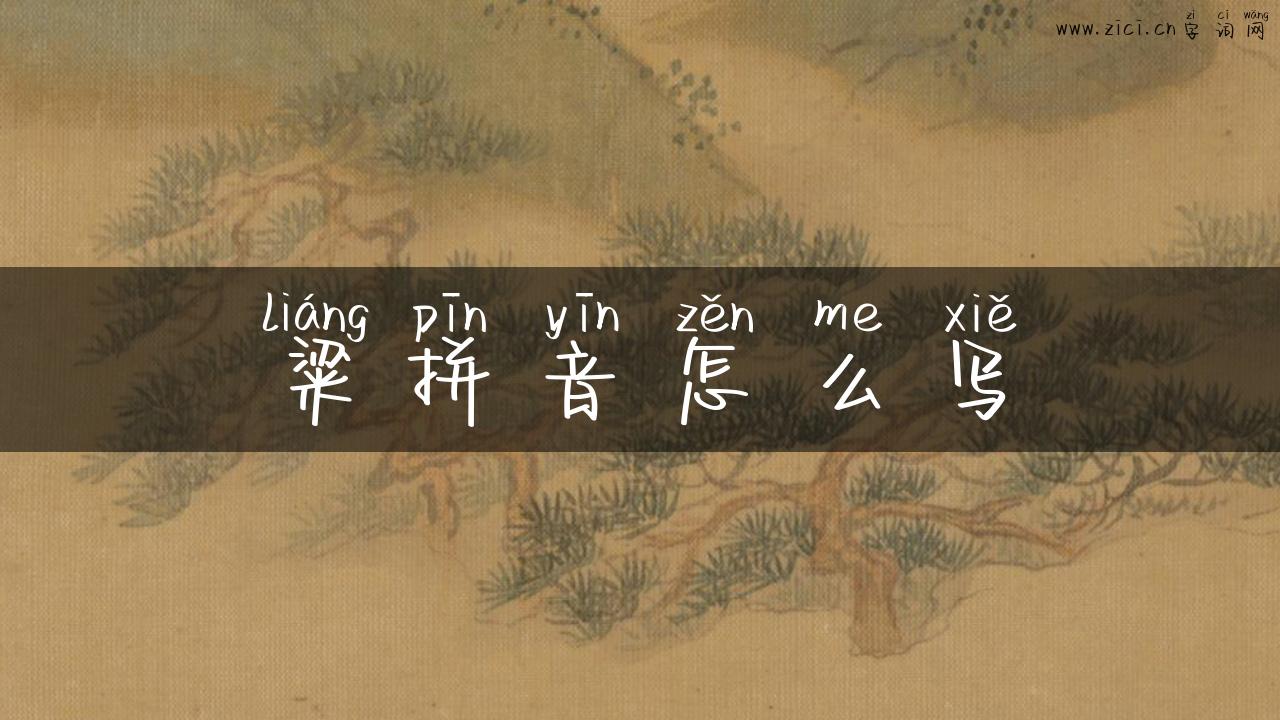 zì cí wǎng
www.zīcī.cn 字词网
liáng pīn yīn zěn me xiě
粱拼音怎么写